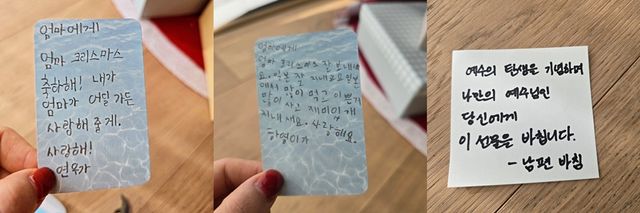 엄마에게!
엄마 크리스마스
축하해! 내가
엄마가 어딜 가든
사랑해 줄게.
사랑해!
연우가
엄마에게
엄마 크리스마스 잘 보내세
요. 일본 잘 지내고요 일본
에서 많이 먹고 이쁜거
많이 사고 재미있게
지내세요. 사랑해요.
하영이가
예수의 탄생을 기념하며
나만의 예수님인
당신에게
이 선물을 바칩니다.
- 남편 바침